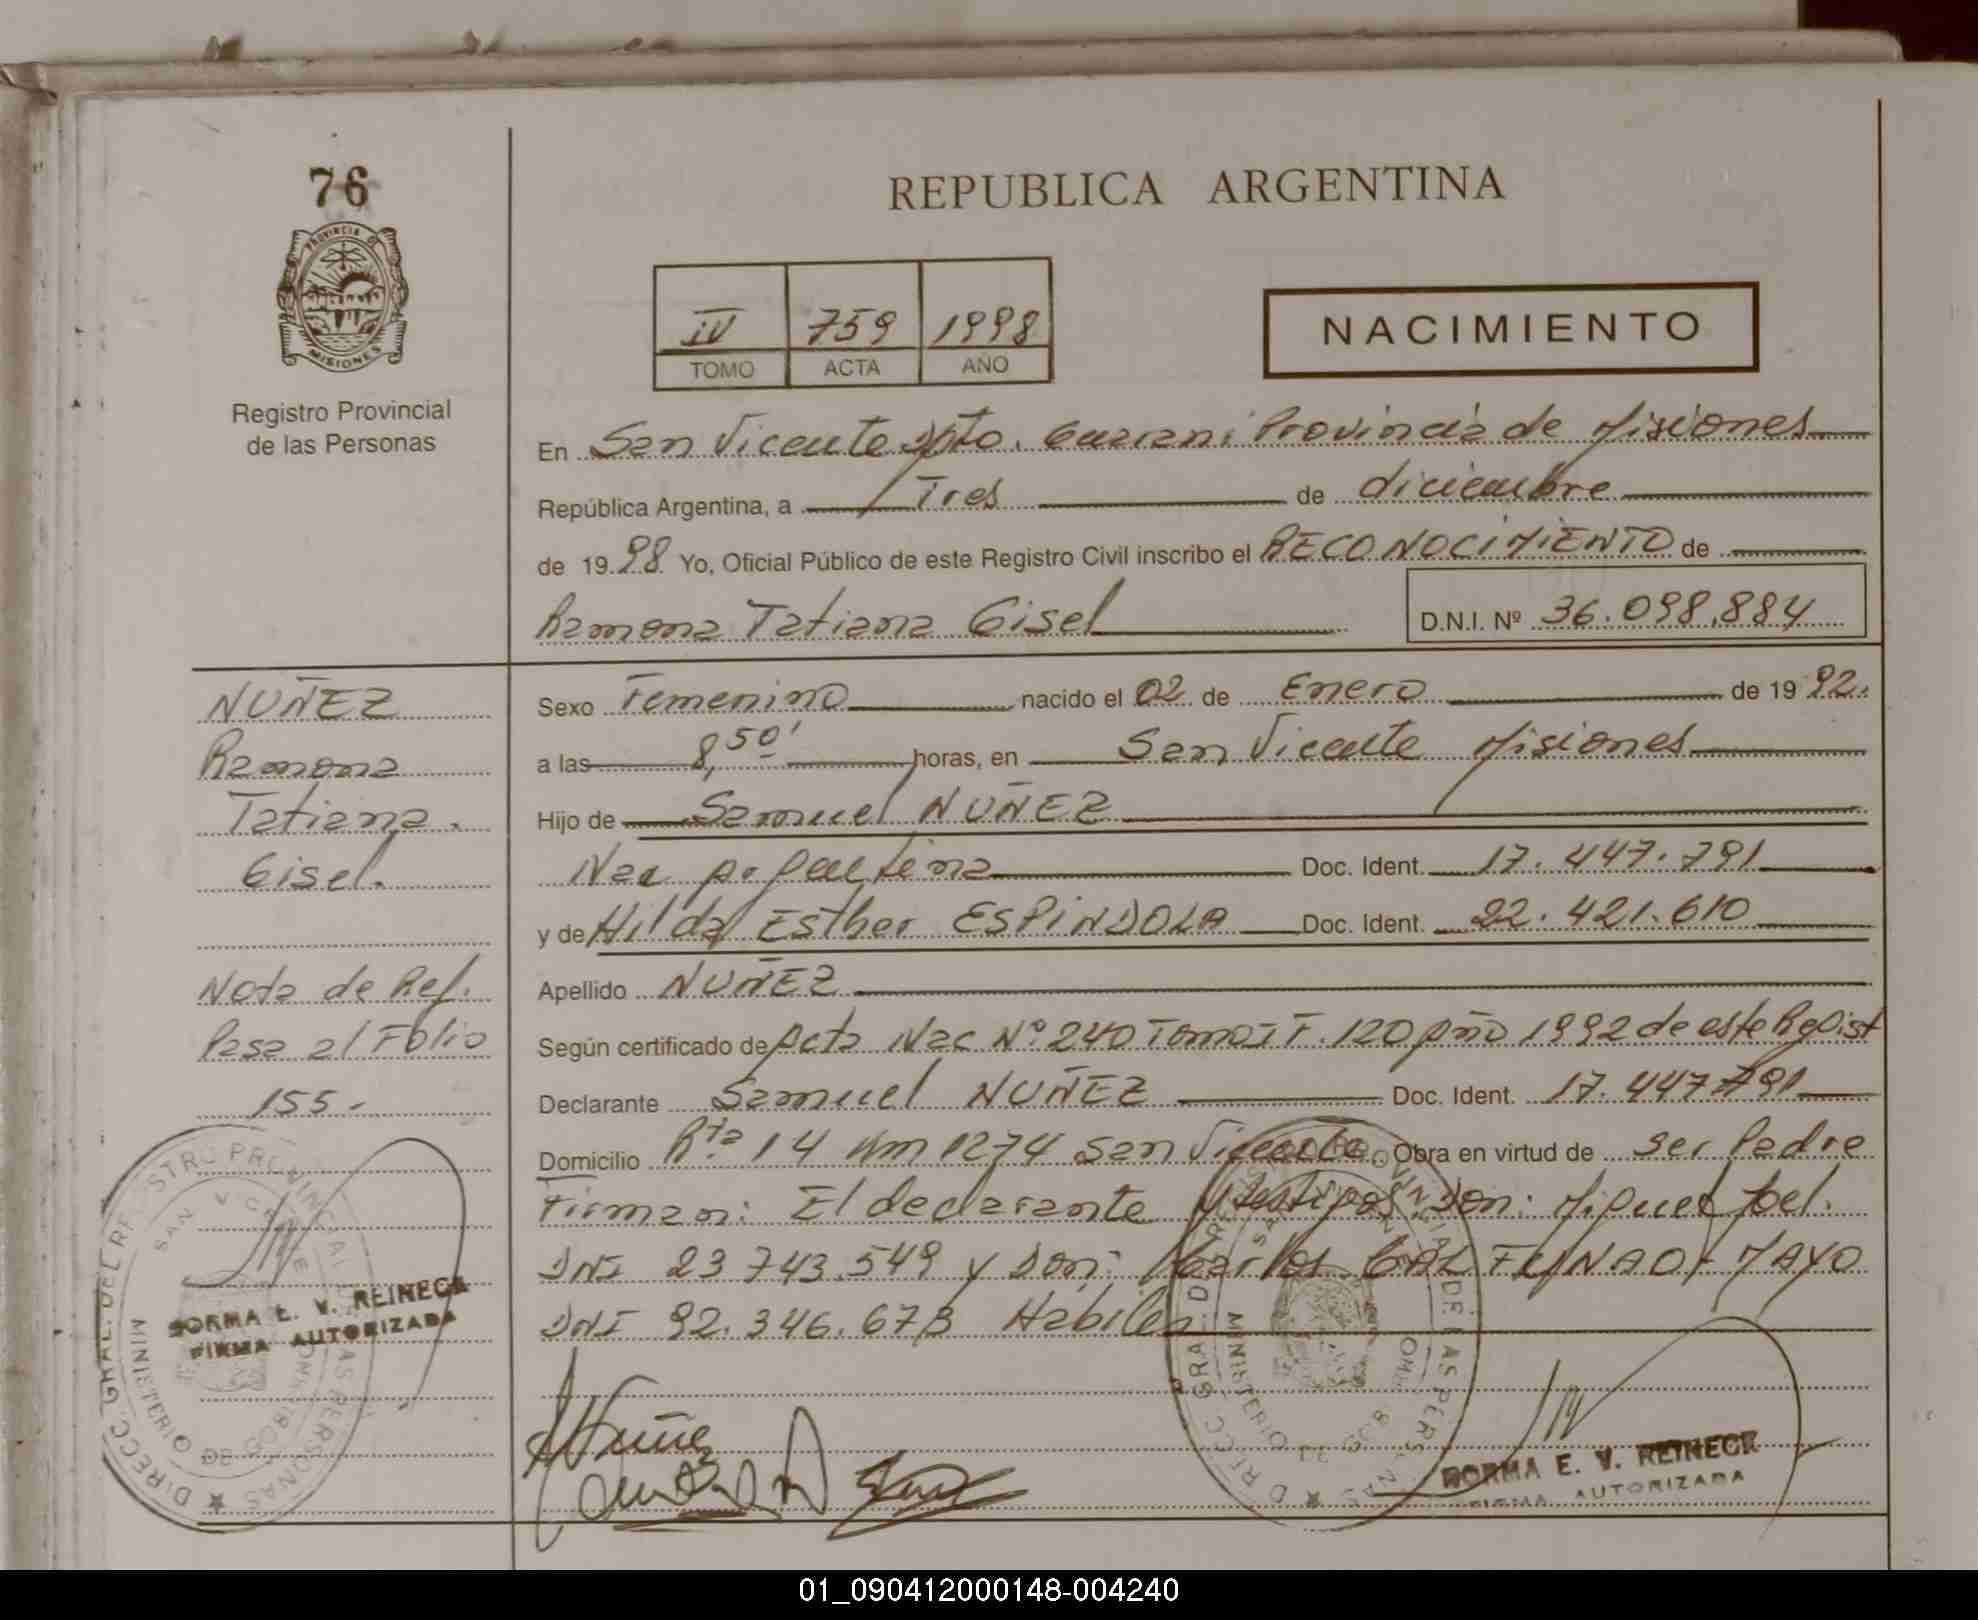 76
PROVINCIA DE
MISIONES
Registro Provincial
de las Personas
REPUBLICA ARGENTINA
IV 759 1998
TOMO ACTA AÑO
NACIMIENTO
En San Vicente Dpto. Guarani Provincia de Misiones
República Argentina, a Tres de diciembre
de 1998 Yo, Oficial Público de este Registro Civil inscribo el RECONOCIMIENTO de
Ramona Tatiana Gisel
D.N.I. Nº 36.098.884
NUÑEZ
Ramona
Tatiana.
Gisel.
Nota de Ref.
Pasa al Folio
155.-
Sexo Femenino nacido el 02 de Enero de 1992.
a las 8,50' horas, en San Vicente Misiones
Hijo de Samuel NUÑEZ
Nac Argentina Doc. Ident. 17.447.791
y de Hilda Esther ESPINDOLA Doc. Ident. 22.421.610
Apellido NUÑEZ
Según certificado de Acta Nac Nº 240 Tomo I F. 120 Año 1992 de este Regist
Declarante Samuel NUÑEZ Doc. Ident. 17.447.791
Domicilio Rta 14 Km 1274 San Vicente. Obra en virtud de ser Padre
Firman: El declarante y testigos Don: Miguel
DNI 23.743.549 y Don: Carlos
DNI 92.346.673 Habiles
DIRECC. GRAL. DEL REGISTRO PROVINCIAL DE LAS PERSONAS
SAN VICENTE
MINISTERIO DE GOB
NORMA E. V. REINECK
FIRMA AUTORIZADA
DIRECC. GRAL. DEL REGISTRO PROVINCIAL DE LAS PERSONAS
MINISTERIO DE GOB
NORMA E. V. REINECK
FIRMA AUTORIZADA
01_090412000148-004240